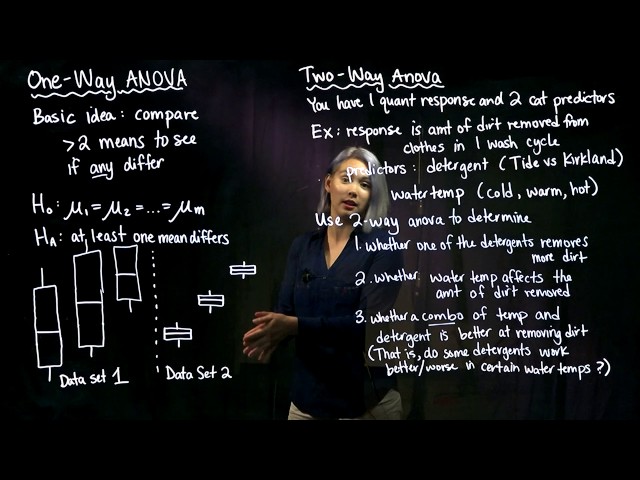 One-Way ANOVA
Basic idea: compare
>2 means to see
if any differ
H₀: μ₁ = μ₂ = ... = μₘ
Hₐ: at least one mean differs
Data set 1
Data Set 2
Two-Way Anova
You have 1 quant response and 2 cat predictors
Ex: response is amt of dirt removed from
clothes in 1 wash cycle
predictors: detergent (Tide vs Kirkland)
water temp (cold, warm, hot)
Use 2-way anova to determine
1. whether one of the detergents removes
more dirt
2. whether water temp affects the
amt of dirt removed
3. whether a combo of temp and
detergent is better at removing dirt
(That is, do some detergents work
better/worse in certain water temps?)